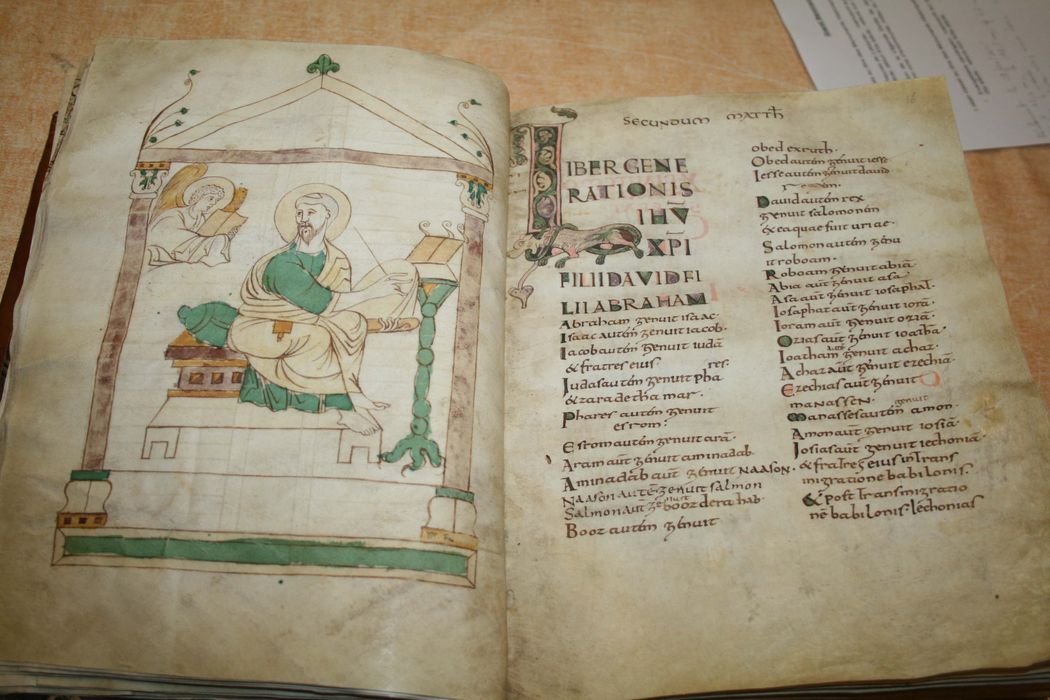 SECUNDUM MATTH̄
LIBER GENE
RATIONIS
IHV̄
XPI
FILII DAVID FI
LII ABRAHAM
Abraham genuit isaac·
Isaac autem genuit iacob·
Iacob autem genuit iudā
& fratres eius·
res·
Judas autem genuit pha
& zara de thamar·
Phares autem genuit
esrom·
Esrom autem genuit arā·
Aram aut̄ genuit aminadab
Aminadab aut̄ genuit NAASON·
NAASON aut̄ genuit salmon
Salmon aut̄ genuit booz de rahab·
Booz autem genuit
obed ex ruth·
Obed autem genuit iesse
Iesse autem genuit david
regem·
David autem rex
genuit salomonem
ex ea quae fuit uriae·
Salomon autem genu
it roboam·
Roboam genuit abiā·
Abia aut̄ genuit asa·
Asa aut̄ genuit iosaphat·
Iosaphat aut̄ genuit iorā·
Ioram aut̄ genuit oziā·
Ozias aut̄ genuit ioathā·
Ioatham aut̄ genuit achaz·
Achaz aut̄ genuit ezechiā·
Ezechias aut̄ genuit
manassen·
genuit
Manasses autem amon·
Amon aut̄ genuit iosiā·
Josias aut̄ genuit iechoniā·
& fratres eius in trans
migratione babilonis·
& post transmigratio
nē babilonis· Iechonias